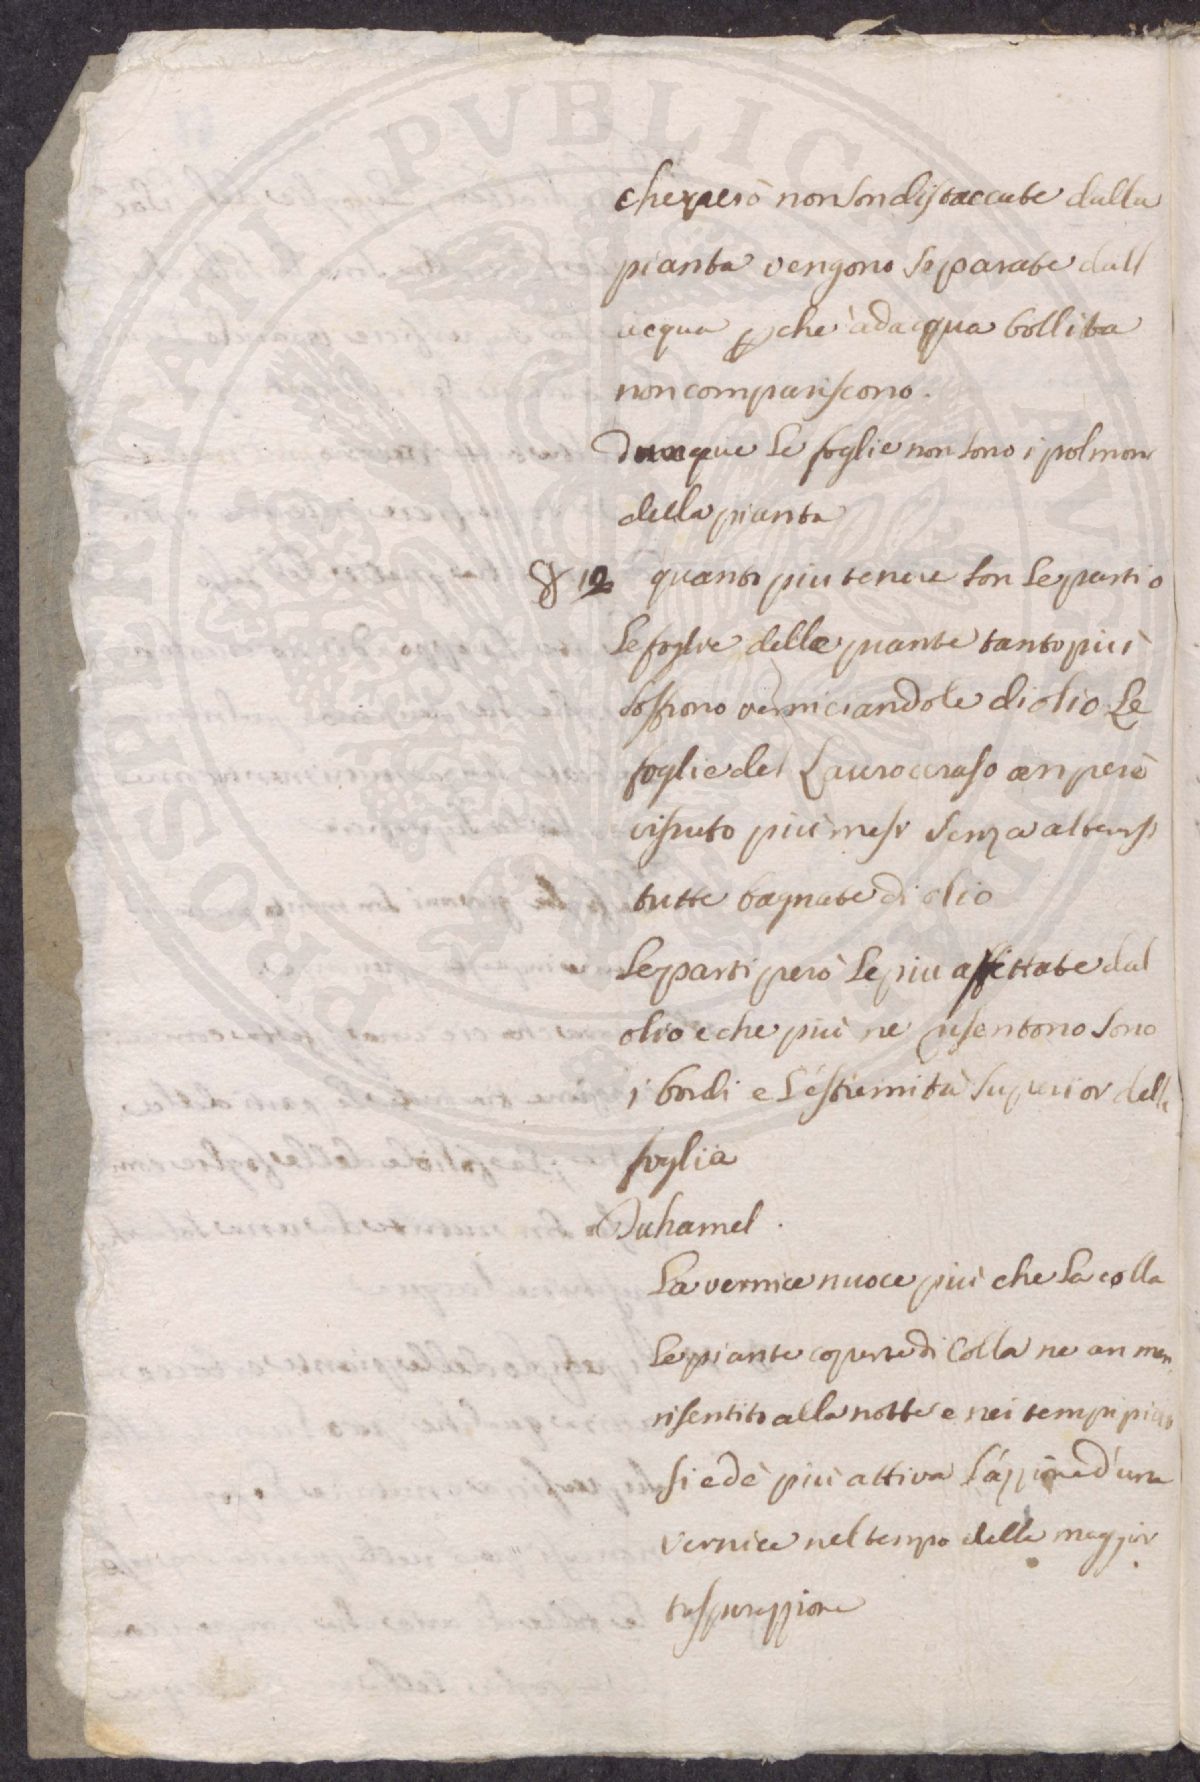 che però non son distaccate dalla
pianta vengono separate dall
acqua p che ad acqua bollita
non compariscono.
Dunque le foglie non sono i polmon
della pianta
§ 12 quanto piu tenere son le parti o
le foglie delle piante tanto più
soffrono verniciandole di olio. Le
foglie del Lauroceraso an però
vissuto più mesi senza alterarsi
tutte bagnate di olio
Le parti però le piu affettate dal
olio e che più ne risentono sono
i bordi e l'estremità superior della
foglia
Duhamel.
La vernice nuoce più che la colla
Le piante coperte di Colla ne an men
risentito alla notte e nei tempi
si ed è più attiva l'azzione d'una
vernice nel tempo della maggior
traspirazzione
PROSPERNATI PVBLICIN